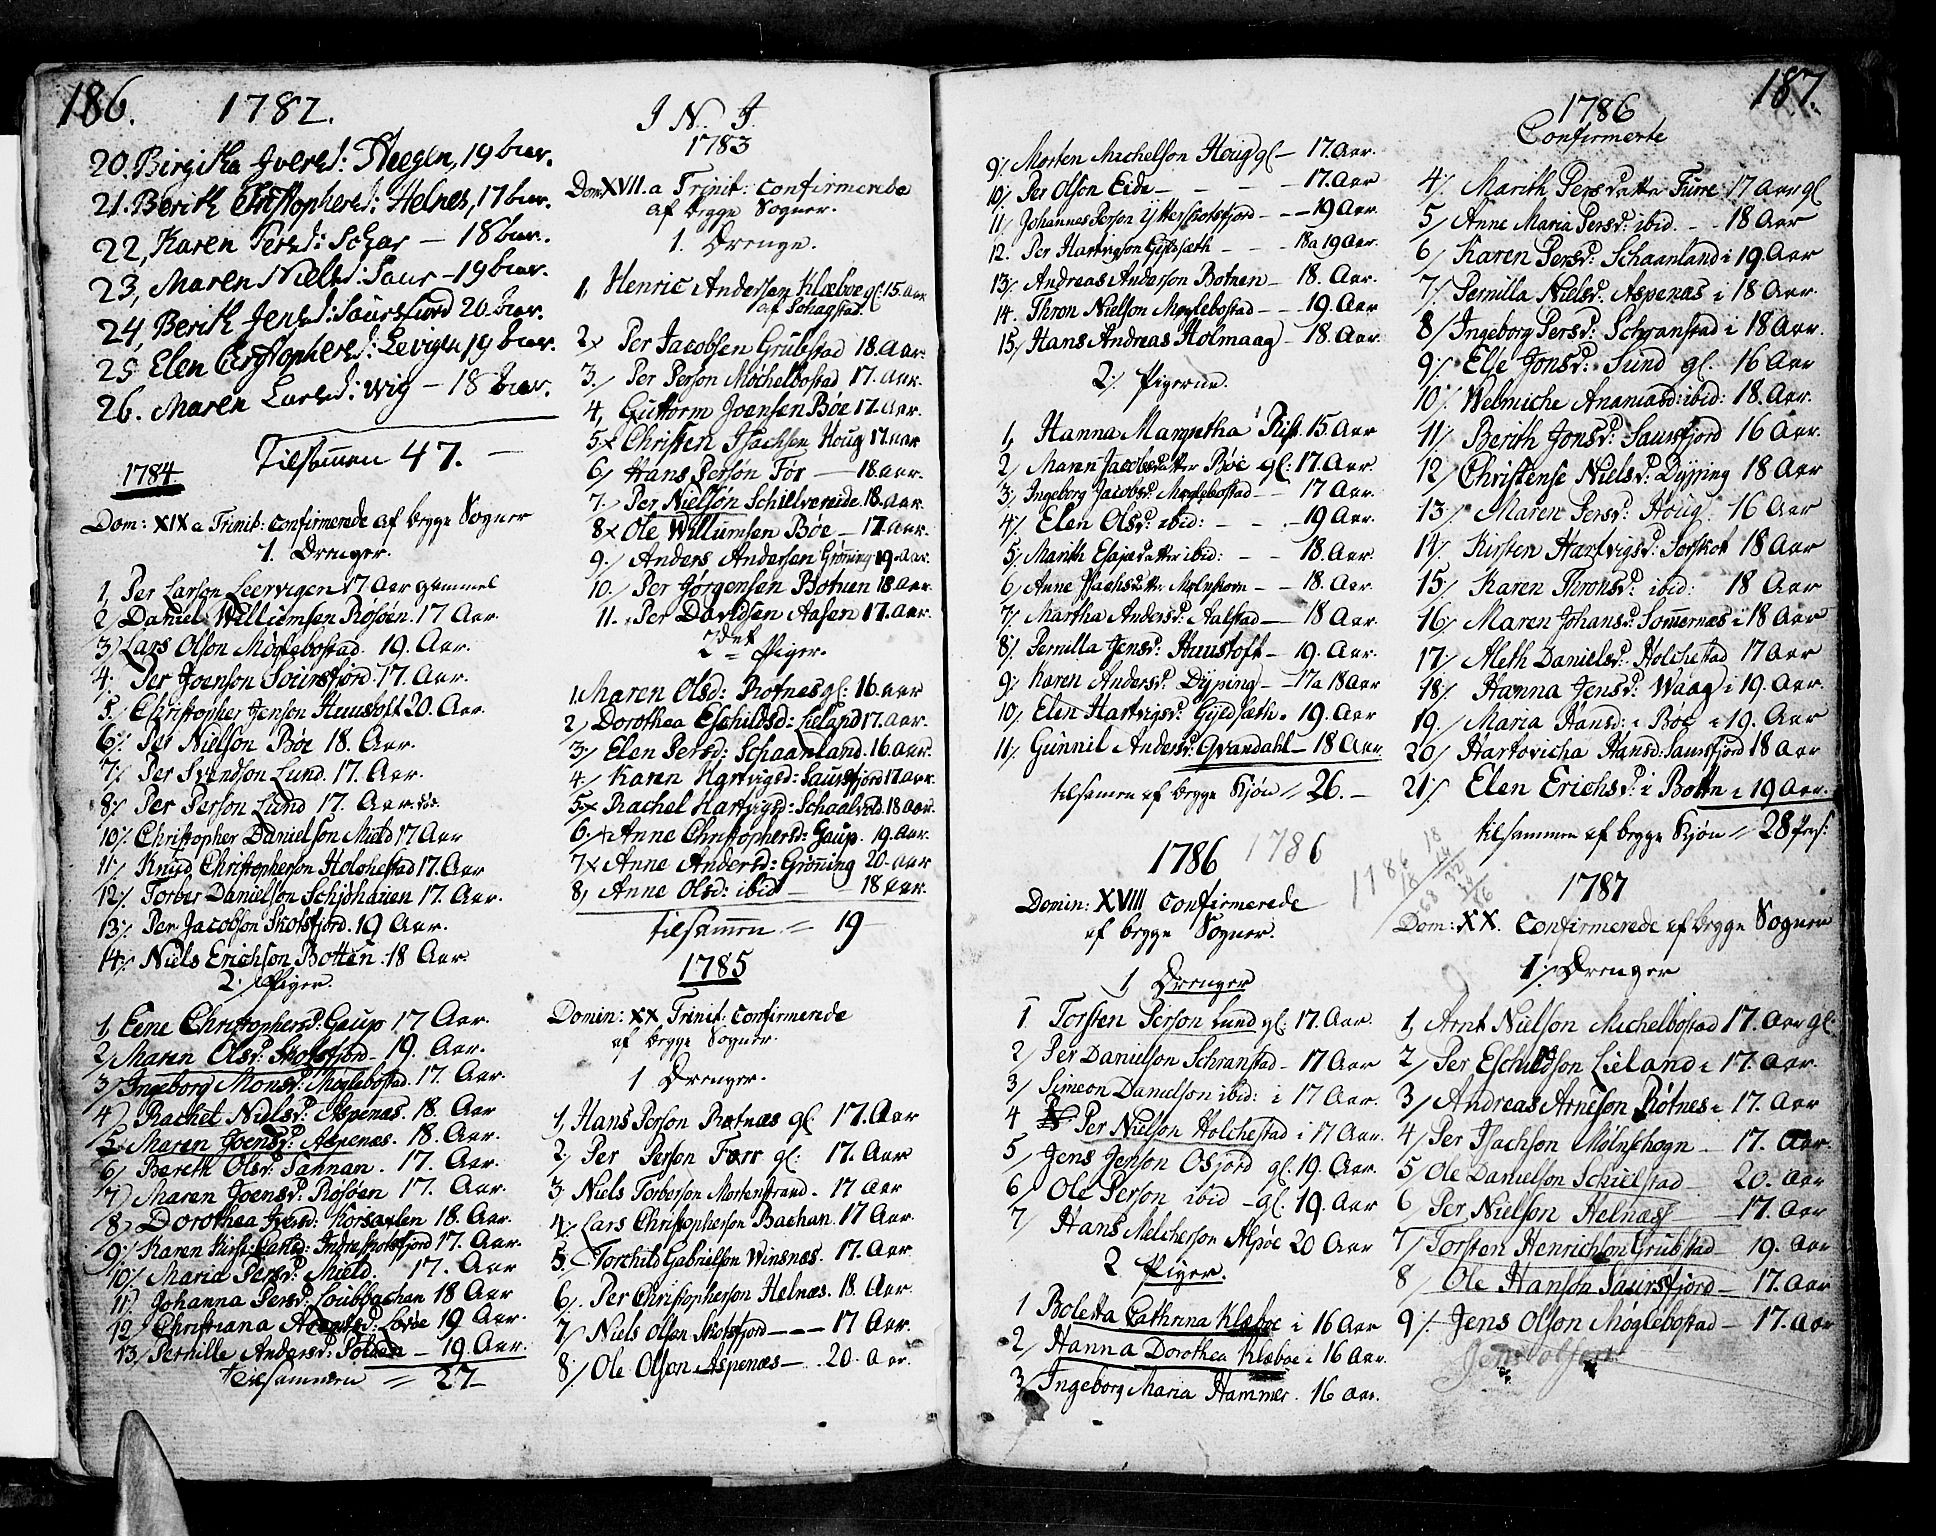 186.
1782.
20. Birgitha Iversd: Steegen, 19 aar.
21. Berith Christophersd: Helnes, 17 aar.
22, Karen Persd: — 18 aar.
23, Maren Nielsd: Saur — 19 aar.
24, Berith Jensd: Saursfiord 20 aar.
25 Elen Christophersd: Levigen 19 aar.
26. Maren Larsd: Wig — 18 aar.
Tilsammen 47. —
1784.
Dom: XIX a Trinit: Confirmerede af begge Sogner
1. Drenger.
1, Per Larson Leervigen 17 Aar gammel
2 Daniel Willumsen Rosøen 17 Aar.
3/ Lars Olson Møglebostad. 19. Aar.
4. Per Joenson Soursfjord. 17. Aar.
5. Christopher Jenson Huustoft 20. Aar.
6/. Per Nielson Bøe 18. Aar.
7/. Per Svendson Lund. 17. Aar.
8/. Per Person Lund 17. Aar.
10/. Christopher Danielson Mield 17 Aar
11/. Knud Christopherson Holchestad 17. Aar.
12/. Torber Danielson 17. Aar.
13/. Per Jacobson Skotsfjord. 19 Aar.
14/. Niels Erichson Botten. 18 Aar.
2. Piger.
1, Ene Christophersd: Gaup 17 Aar.
2/ Maren Olsd: Skotsfjord - 19. Aar.
3/ Ingeborg Monsd: Møglebostad. 17. Aar.
4/ Rachel Nielsd: Aspenæs. 18. Aar.
5. Maren Joensd: Aspenæs. 18. Aar.
6/ Bereth Olsd: . 17. Aar.
7/ Maren Joensd: Rosøen 17. Aar.
8/ Dorothea Iversd: Korsaalen 18. Aar.
9/. Karen Kirst: Larsd: Indreskotsfjord 17. Aar.
10/. Maria Persd: Mield. 17. Aar
11/. Johanna Persd: Loubbachan 18 Aar
12/ Christiana 19 Aar.
13/. Pernille Andersd: — 19. Aar.
Tilsammen = 27 —
J. N. J.
1783
Dom XVII. a Trinit: Confirmerede
af begge Sogner.
1. Drenge.
1, Henric Andersen Klæboe gl. 15. Aar
af Schagstad.
2 Per Jacobsen Grubstad 18. Aar.
3. / Per Person Møchelbostad 17. Aar.
4, Guttorm Joensen Bøe 17. Aar.
5 Christen Isachsen Houg 17. aar
6/ Hans Person For — 18. aar.
7. Per Nielson Schielvereide 18. Aar.
8 Ole Willumsen Bøe — 17. Aar.
9. / Anders Andersen Grønning 19. Aar.
10. Per Jørgensen Botnen 18 Aar.
11. Per Davidsen Aasen 17. Aar.
2det Piger.
1. Maren Olsd: Rotnes gl: 16. aar
2 Dorothea Eschildsd: Lieland 17. aar.
3/ Elen Persd: Schaanland. 16 aar.
4/ Karen Hartvigsd: Saursfjord 17. aar.
5 Rachel Hartvigsd: Schaalvold 18 aar.
6. Anne Christophersd: Gaup. 19. Aar.
7 Anne Andersd: Grønning 20. aar
8, Anne Olsd: ibid — 18 aar.
Tilsammen = 19 —
1785
Domin: XX Trinit: Confirmerede
af begge Sogner.
1 Drenger.
1, Hans Person Rotnæs gl. 17. Aar
2/ Per Person Forr gl: 17. Aar
3. Niels Torberson Mortenstrand. 17 Aar
4/. Lars Christopherson Bachan. 17 Aar.
5. Torchild Gabrielson Winsnæs. 17. Aar.
6/. Per Christopherson Helnæs. 18. Aar.
7/ Niels Olson Skotsfjord — — — 17 Aar.
8/. Ole Olson Aspenæs — . 20. Aar.
187.
9/. Morten Michelson Houg gl — 17. Aar.
10/. Per Olson Eide — — — — 17. Aar
11/ Johannes Person Ytterskotsfjord — — 19 Aar.
12. Per Hartvigson Gjeldsæth — — — 18 a 19 Aar.
13/. Andreas Anderson Botnen — 18. Aar.
14. Thron Nielson Møglebostad — — 19. Aar
15/ Hans Andreas Holmaag — 18. Aar.
2/. Pigerne.
1, Hanna Margretha Rist. 15. Aar
2/ Maren Jacobsdatter Bøe gl: 17. Aar.
3/ Ingeborg Jacobsd: Møglebostad — — 17 Aar.
4/. Elen Olsd: ibid: — — . 19 Aar.
5/ Marith Esajædatter ibid: — — 18. Aar.
6/ Anne Isachsdatter Malnstrøm — — 18. Aar.
7/. Martha Andersd: Aalstad — 18 Aar.
8/. Pernilla Jensd: Huustoft — 19. Aar.
9/ Karen Andersd: Dyping — — 17 a 18 Aar
10/. Elen Hartvigsd: Gjeldsæth. 19. Aar
11/. Gunnil Andersd: Qvandahl — 18 Aar.
tilsamen af begge Kjøn = 26. —
1786 1786
Domin: XVIII confirmerede
af begge Sogner.
1 Drenger
1 Torsten Person Lund gl. 17. Aar.
2/ Per Danielson Schranstad — 17 Aar.
3/ Simeon Danielson ibid: i 17 Aar.
4 Per Nielson Holchestad i 17 Aar.
5/ Jens Jenson Osfjord gl. 19. Aar.
6/ Ole Person ibid — gl. 19. Aar.
7/ Hans Melcherson Alpøe 20 Aar
2 Piger.
1 Boletta Cathrina Klæboe i 16 Aar
2/ Hanna Dorothea Klæboe i 16 Aar.
3/ Ingeborg Maria Hammer. 16 Aar.
1786
Confirmerte
4/. Marith Persdatter Furre 17 Aar gl
5/ Anne Maria Persd: ibid. . 18 Aar
6/ Karen Persd: Schaanland i 19 Aar
7/. Pernilla Nielsd. Aspenæs i 18 Aar.
8/ Ingeborg Persd: Schranstad i 18 Aar.
9/. Else Jonsd: Sund gl. 16 Aar
10/. Welmiche Ananiasd: ibid: 18. Aar.
11/. Berith Jonsd: Saursfjord 16 Aar
12/ Christense Nielsd: Dyping 18 Aar
13/. Maren Persd: Houg. 16 Aar
14/. Kirsten Hartvigsd: Sorskot 18 Aar
15/. Karen Thronsd: ibid: 18 Aar
16/. Maren Johansd: Sommernæs i 18 Aar
17/. Aleth Danielsd: Holchestad 17 Aar
18/. Hanna Jensd: Waag i 19. Aar.
19. Maria Hansd: i Bøe i 19. Aar
20/ Hartvicha Hansd: Saursfjord 18 Aar
21/. Elen Erichsd: i Botten i 19 Aar.
tilsammen af begge Kjøn = 28 Pers:
1786
18
1787
Dom: XX. Confirmerede af begge Sogner
1/. Drenger
1, Arnt Nielson Michelbostad 17. Aar gl:
2/ Per Eschildson Lieland i 17. Aar.
3/ Andreas Arneson Røtnes i 17. Aar
4/ Per Isachson Mølnshogn — 17. Aar.
5/ Ole Danielson Schielstad — 20. Aar
6 Per Nielson Helnæss — 17. Aar
7/ Torsten Henrichson Grubstad 19. Aar
8/ Ole Hanson Saursfjord — 17. Aar
9/. Jens Olson Møglebostad — 17. Aar
Jens olsen